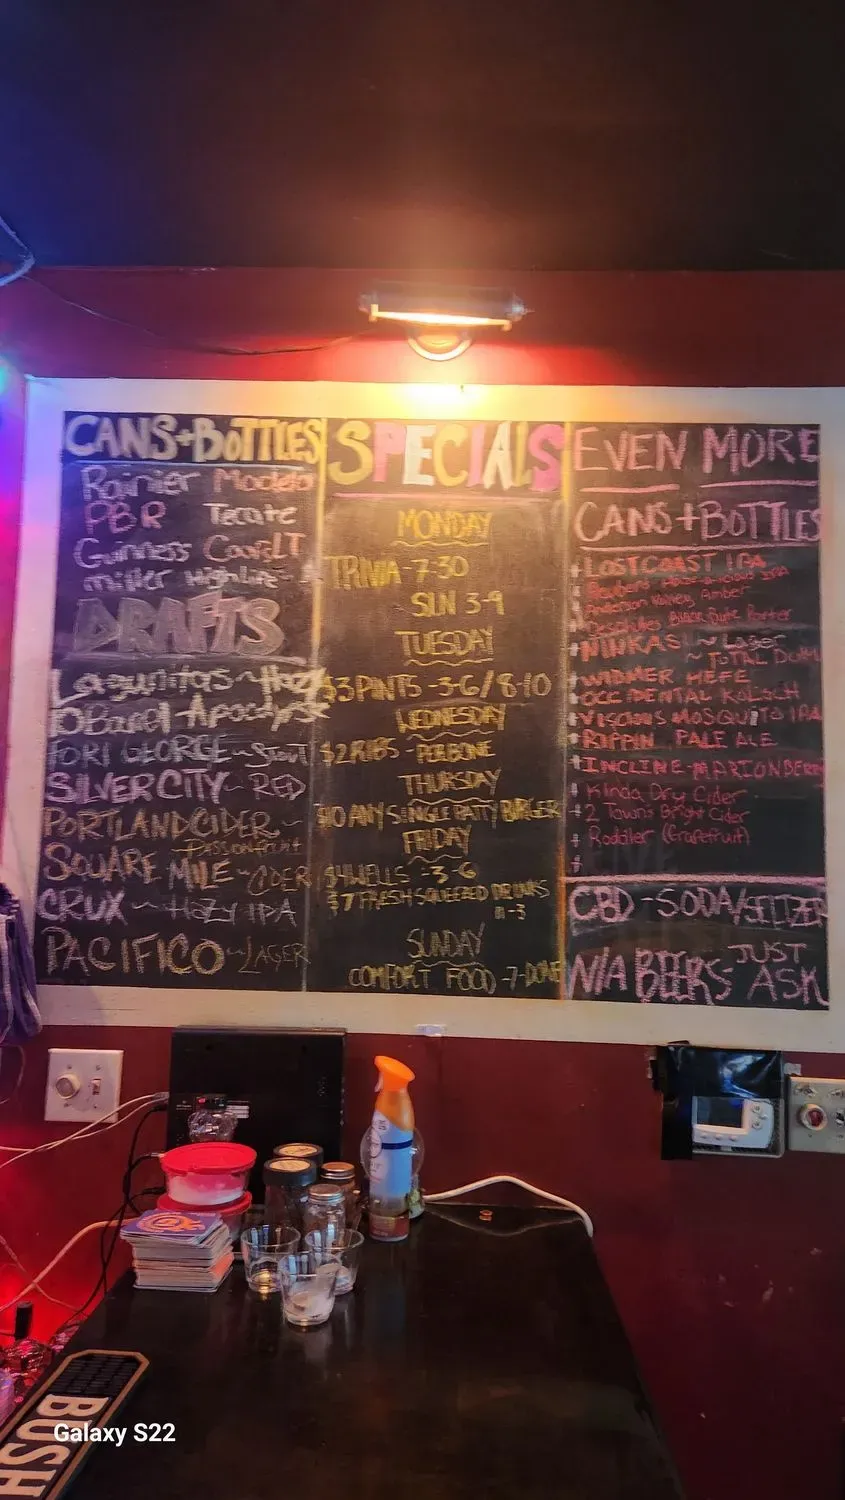 CANS+BOTTLES
Rainier Modelo
PBR Tecate
Guinness Coors LT
miller Highlife
DRAFTS
Lagunitas ~ Hazy
10 Barrel - Apocalypse
FORT GEORGE ~ Stout
SILVER CITY ~ RED
PORTLAND CIDER ~
Passionfruit
SQUARE MILE ~ CIDER
CRUX ~ HaZy IPA
PACIFICO ~ LAGER
SPECIALS
MONDAY
TRIVIA - 7-30
SIN 3-9
TUESDAY
$3 PINTS - 3-6 / 8-10
WEDNESDAY
$2 RIBS - PER BONE
THURSDAY
$10 ANY SINGLE PATTY BURGER
FRIDAY
$4 WELLS - 3-6
$7 FRESH SQUEEZED DRINKS
11-3
SUNDAY
COMFORT FOOD - 7-DONE
EVEN MORE
CANS+BOTTLES
LOST COAST IPA
IPA
Anderson Valley Amber
Deschutes Black Butte Porter
NINKASI ~ Lager
~ TOTAL Dom
WIDMER HEFE
OCCIDENTAL KOLSCH
VISCIOUS MOSQUITO IPA
RIPPIN PALE ALE
INCLINE - MARIONBERRY
Kinda Dry Cider
2 Towns Bright Cider
Roddler (Grapefruit)
CBD - SODA/SELTZER
N/A BEERS - JUST
ASK
BUSH
Galaxy S22